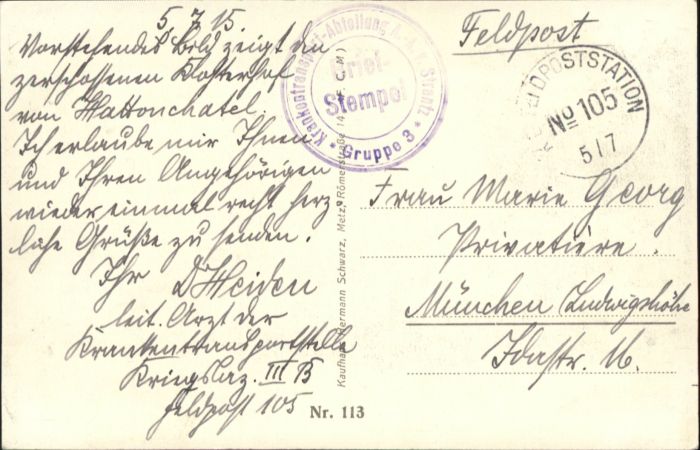 5.7.15.
Vorstehendes Bild zeigt den
zerschossenen Klosterhof
von Hattonchatel.
Ich erlaube mir Ihnen
und Ihren Angehörigen
wieder einmal recht herz-
liche Grüße zu senden.
Ihr D Heiden
leit. Arzt der
Krankentransportstelle
Kriegslaz. III B
Feldpost 105
Krankentransport-Abteilung A.-A. v. Strantz
Brief-
Stempel
* Gruppe 3 *
Feldpost
FELDPOSTSTATION
No 105
5/7
Frau Marie Georg
Privatière.
München Ludwigshöhe
Idastr. 16.
Kaufhaus Hermann Schwarz, Metz, Römerstraße
Nr. 113